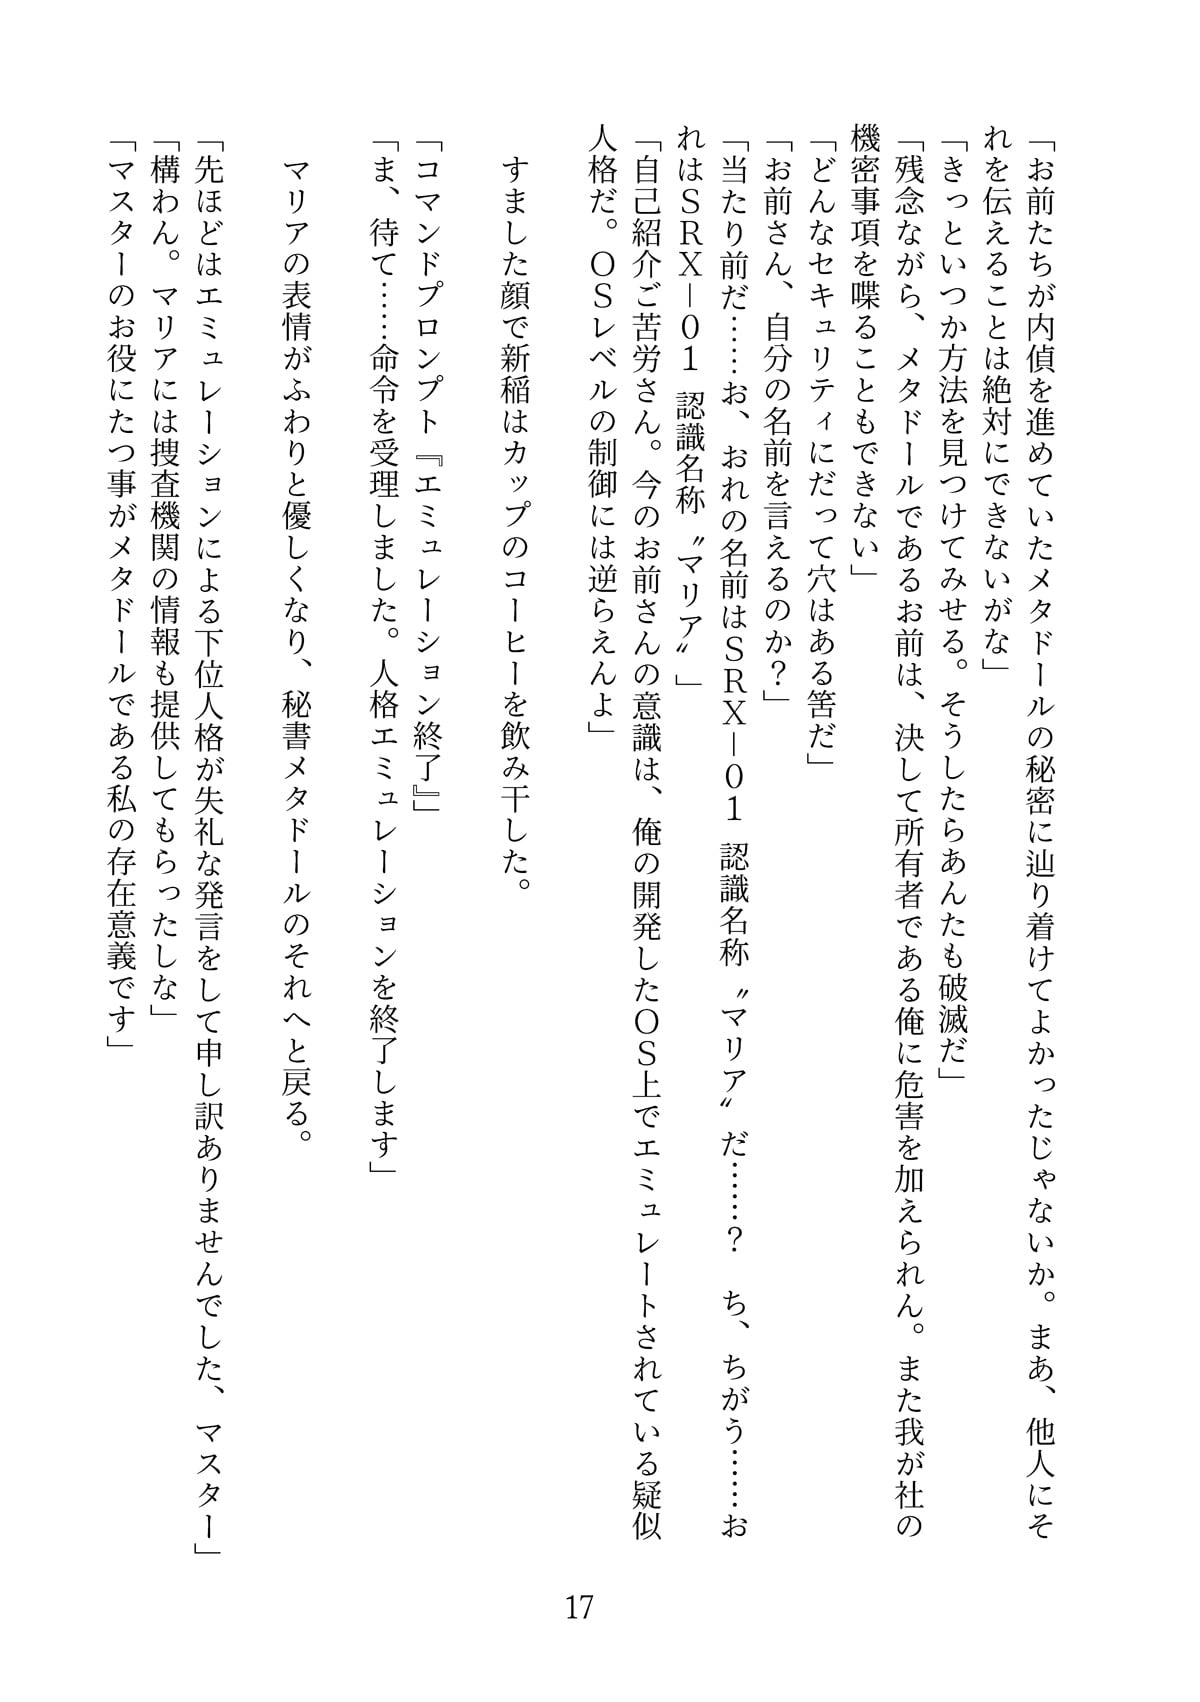 「お前たちが内偵を進めていたメタドールの秘密に辿り着けてよかったじゃないか。まあ、他人にそ
れを伝えることは絶対にできないがな」
「きっといつか方法を見つけてみせる。そうしたらあんたも破滅だ」
「残念ながら、メタドールであるお前は、決して所有者である俺に危害を加えられん。また我が社の
機密事項を喋ることもできない」
「どんなセキュリティにだって穴はある筈だ」
「お前さん、自分の名前を言えるのか？」
「当たり前だ……お、おれの名前はＳＲＸ－０１ 認識名称〝マリア〟だ……？　ち、ちがう……お
れはＳＲＸ－０１ 認識名称〝マリア〟」
「自己紹介ご苦労さん。今のお前さんの意識は、俺の開発したＯＳ上でエミュレートされている疑似
人格だ。ＯＳレベルの制御には逆らえんよ」
すました顔で新稲はカップのコーヒーを飲み干した。
「コマンドプロンプト『エミュレーション終了』」
「ま、待て……命令を受理しました。人格エミュレーションを終了します」
マリアの表情がふわりと優しくなり、秘書メタドールのそれへと戻る。
「先ほどはエミュレーションによる下位人格が失礼な発言をして申し訳ありませんでした、マスター」
「構わん。マリアには捜査機関の情報も提供してもらったしな」
「マスターのお役にたつ事がメタドールである私の存在意義です」
17